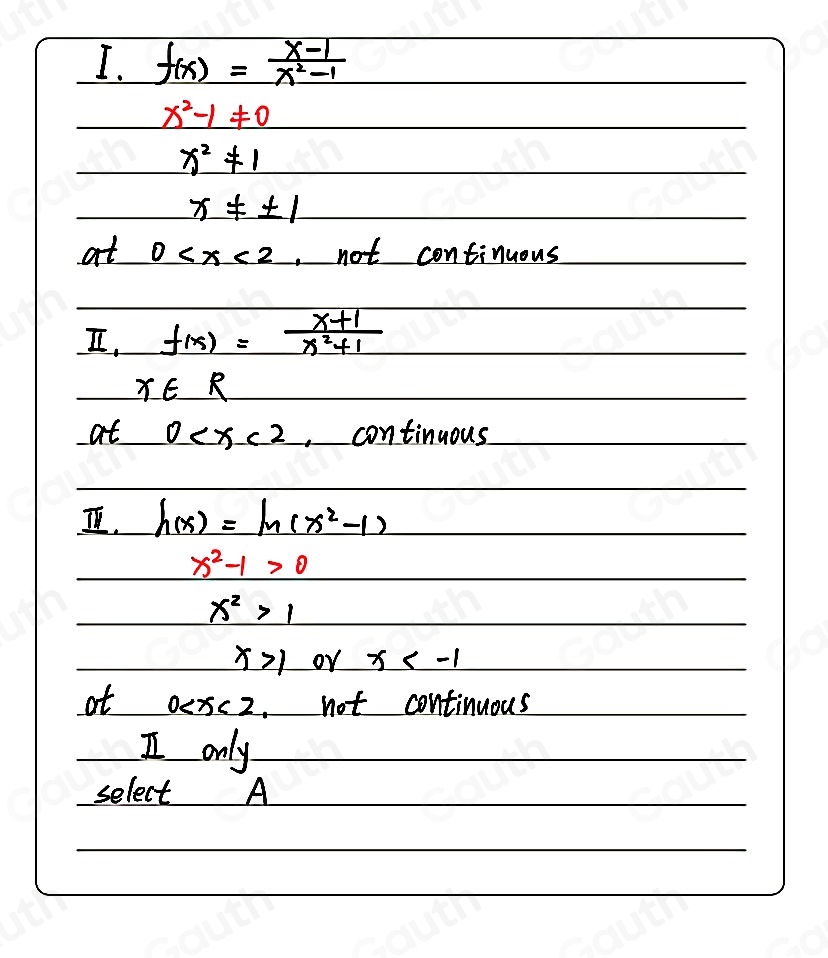 I. f(x) = \frac{x-1}{x²-1}
x²-1 ≠ 0
x² ≠ 1
x ≠ ±1
at 0 < x < 2, not continuous
II. f(x) = \frac{x+1}{x²+1}
x ∈ R
at 0 < x < 2, continuous
III. h(x) = ln(x²-1)
x²-1 > 0
x² > 1
x > 1 or x < -1
at 0 < x < 2, not continuous
II only
select A
Gauth